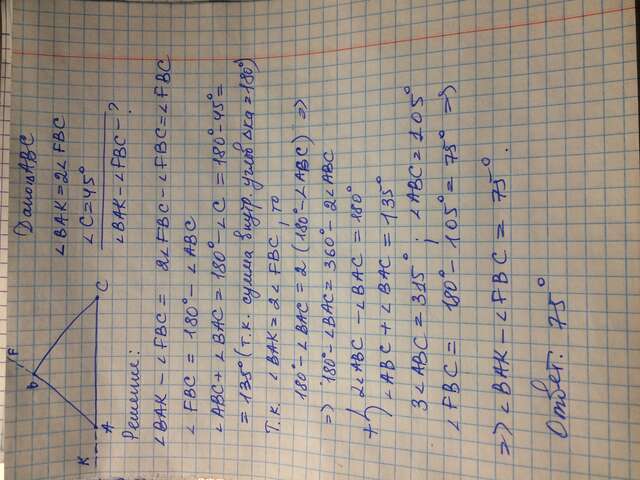 F
B
K
A
C
Дано: ΔABC
∠BAK = 2∠FBC
∠C = 45°
∠BAK - ∠FBC - ?
Решение:
∠BAK - ∠FBC = 2∠FBC - ∠FBC = ∠FBC
∠FBC = 180° - ∠ABC
∠ABC + ∠BAC = 180° - ∠C = 180° - 45° =
= 135° (т.к. сумма внутр. углов Δка = 180°)
Т.к. ∠BAK = 2∠FBC, то
180° - ∠BAC = 2 (180° - ∠ABC) =>
=> 180° - ∠BAC = 360° - 2∠ABC
+{ 2∠ABC - ∠BAC = 180°
∠ABC + ∠BAC = 135°
3∠ABC = 315° ; ∠ABC = 105°
∠FBC = 180° - 105° = 75° =>
=> ∠BAK - ∠FBC = 75°.
Ответ: 75°